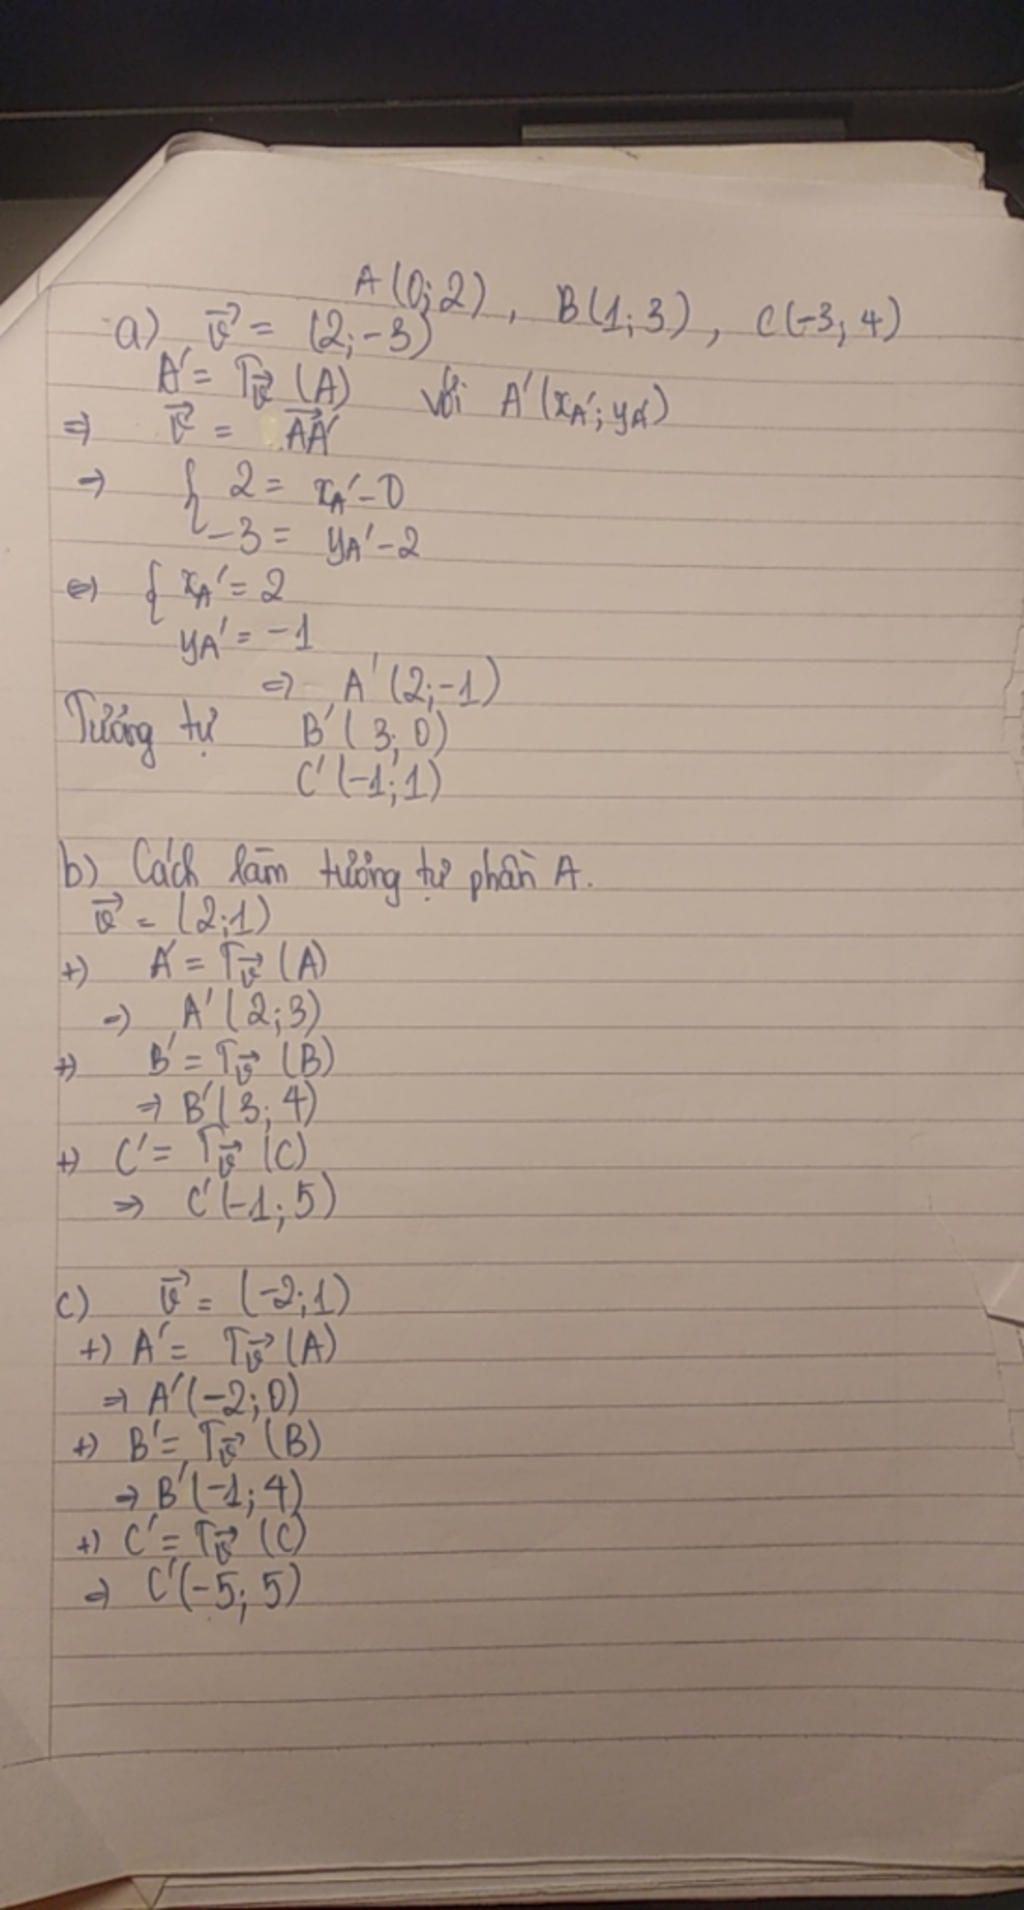 A(0;2), B(1;3), C(-3;4)
a) v⃗ = (2;-3)
A' = Tv⃗ (A) với A'(xA'; yA')
=> v⃗ = AA'⃗
=> { 2 = xA' - 0
-3 = yA' - 2
<=> { xA' = 2
yA' = -1
=> A'(2;-1)
Tương tự B'(3;0)
C'(-1;1)
b) Cách làm tương tự phần A.
v⃗ = (2;1)
+) A' = Tv⃗ (A)
=> A'(2;3)
+) B' = Tv⃗ (B)
=> B'(3;4)
+) C' = Tv⃗ (C)
=> C'(-1;5)
c) v⃗ = (-2;1)
+) A' = Tv⃗ (A)
=> A'(-2;0)
+) B' = Tv⃗ (B)
=> B'(-1;4)
+) C' = Tv⃗ (C)
=> C'(-5;5)